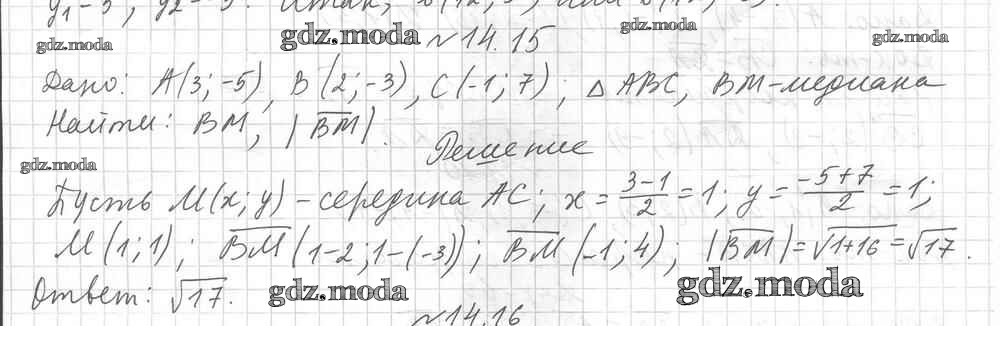 gdz.moda
gdz.moda
gdz.moda
gdz.moda
№14.15
Дано: A(3; -5), B(2; -3), C(-1; 7); △ABC, BM-медиана
Найти: BM, |BM|.
Решение
gdz.moda
Пусть M(x; y) - середина AC; x = (3-1)/2 = 1; y = (-5+7)/2 = 1;
M(1; 1); BM(1-2; 1-(-3)); BM(-1; 4); |BM| = √1+16 = √17.
Ответ: √17.
gdz.moda
gdz.moda
№14.16